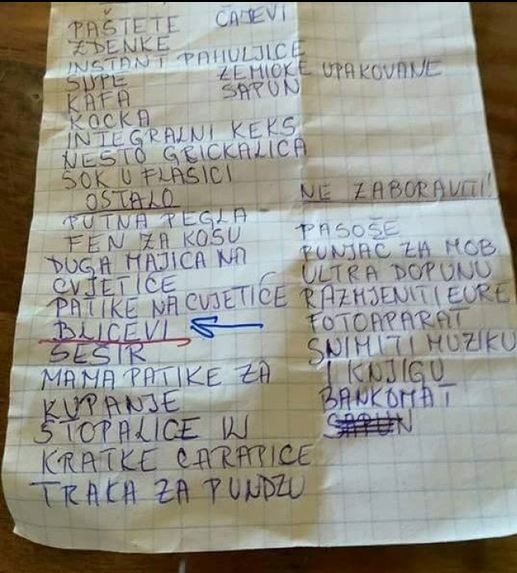 PAŠTETE ČAJEVI
ZDENKE
INSTANT PAHULJICE
SUPE ZEMIČKE UPAKOVANE
KAFA SAPUN
KOCKA
INTEGRALNI KEKS
NEŠTO GRICKALICA
SOK U FLAŠICI
OSTALO
PUTNA PEGLA
FEN ZA KOSU
DUGA MAJICA NA
CVJETIĆE
PATIKE NA CVJETIĆE
BLICEVI
ŠEŠIR
MAMA PATIKE ZA
KUPANJE
STOPALICE ILI
KRATKE ČARAPICE
TRAKA ZA PUNDŽU
NE ZABORAVITI!
PASOŠE
PUNJAČ ZA MOB.
ULTRA DOPUNU
RAZMJENITI EURE
FOTOAPARAT
SNIMITI MUZIKU
I KNJIGU
BANKOMAT
SAPUN